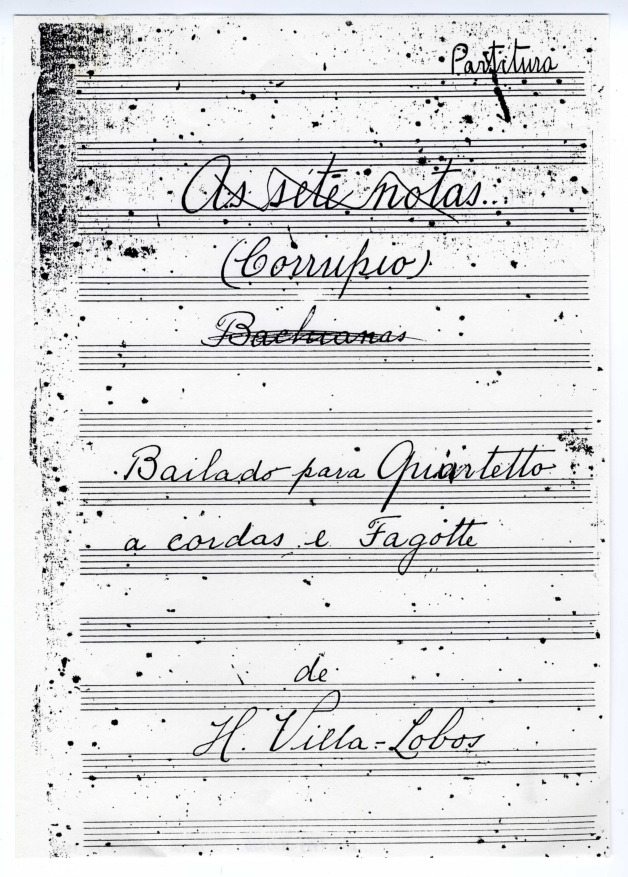 Partitura
As sete notas...
(Corrupio)
Bachianas
Bailado para Quartetto
a cordas e Fagotte
de
H. Villa-Lobos